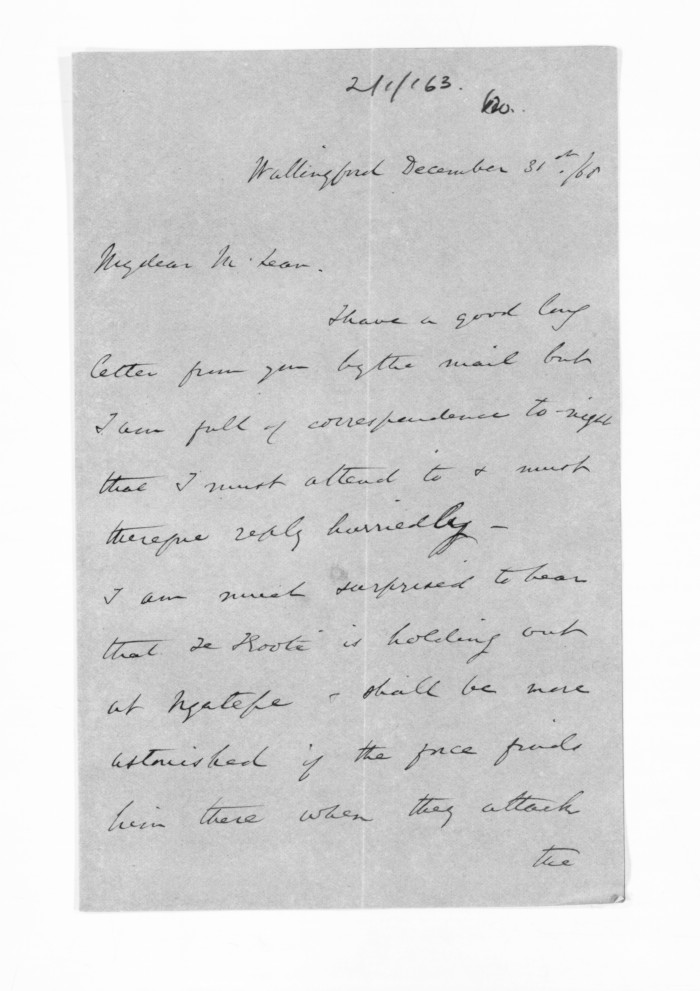 2/1/163.
Wallingford December 31st./68
My dear McLean.
I have a good long
letter from you by the mail but
I am full of correspondence to-night
that I must attend to & must
therefore reply hurriedly –
I am much surprised to hear
that Te Kooti is holding out
at Ngatepe & shall be more
astonished if the force finds
him there when they attack
the